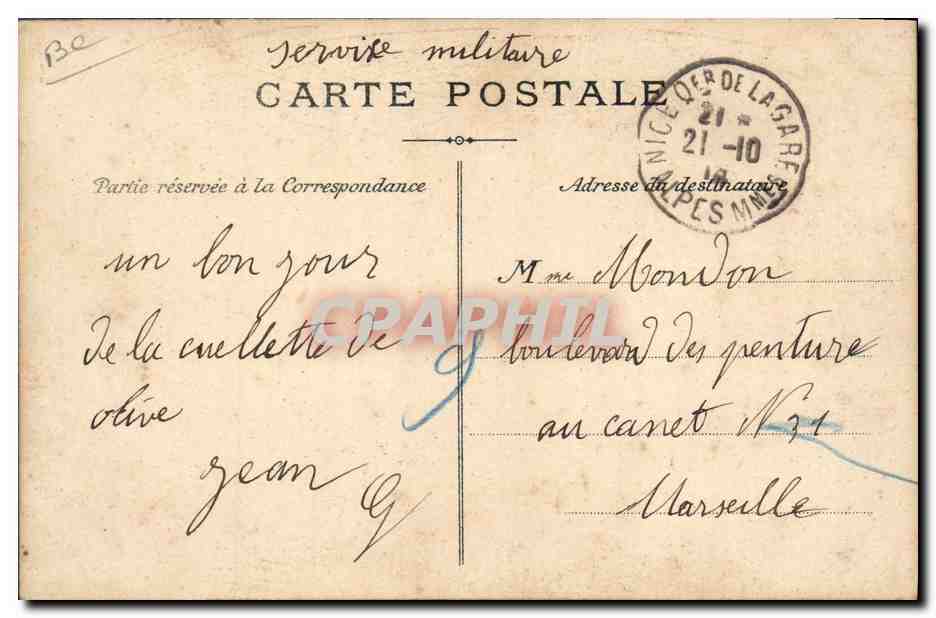 Be
servixe militaire
CARTE POSTALE
NICE QER DE LA GARE
21 *
21 -10
ALPES MMES
Partie réservée à la Correspondance
Adresse du destinataire
un bon jour
de la cuellette de
olive
jean G
9
Mme Mondon
boulevard des penture
au canet N 31
Marseille
CPAPHIL